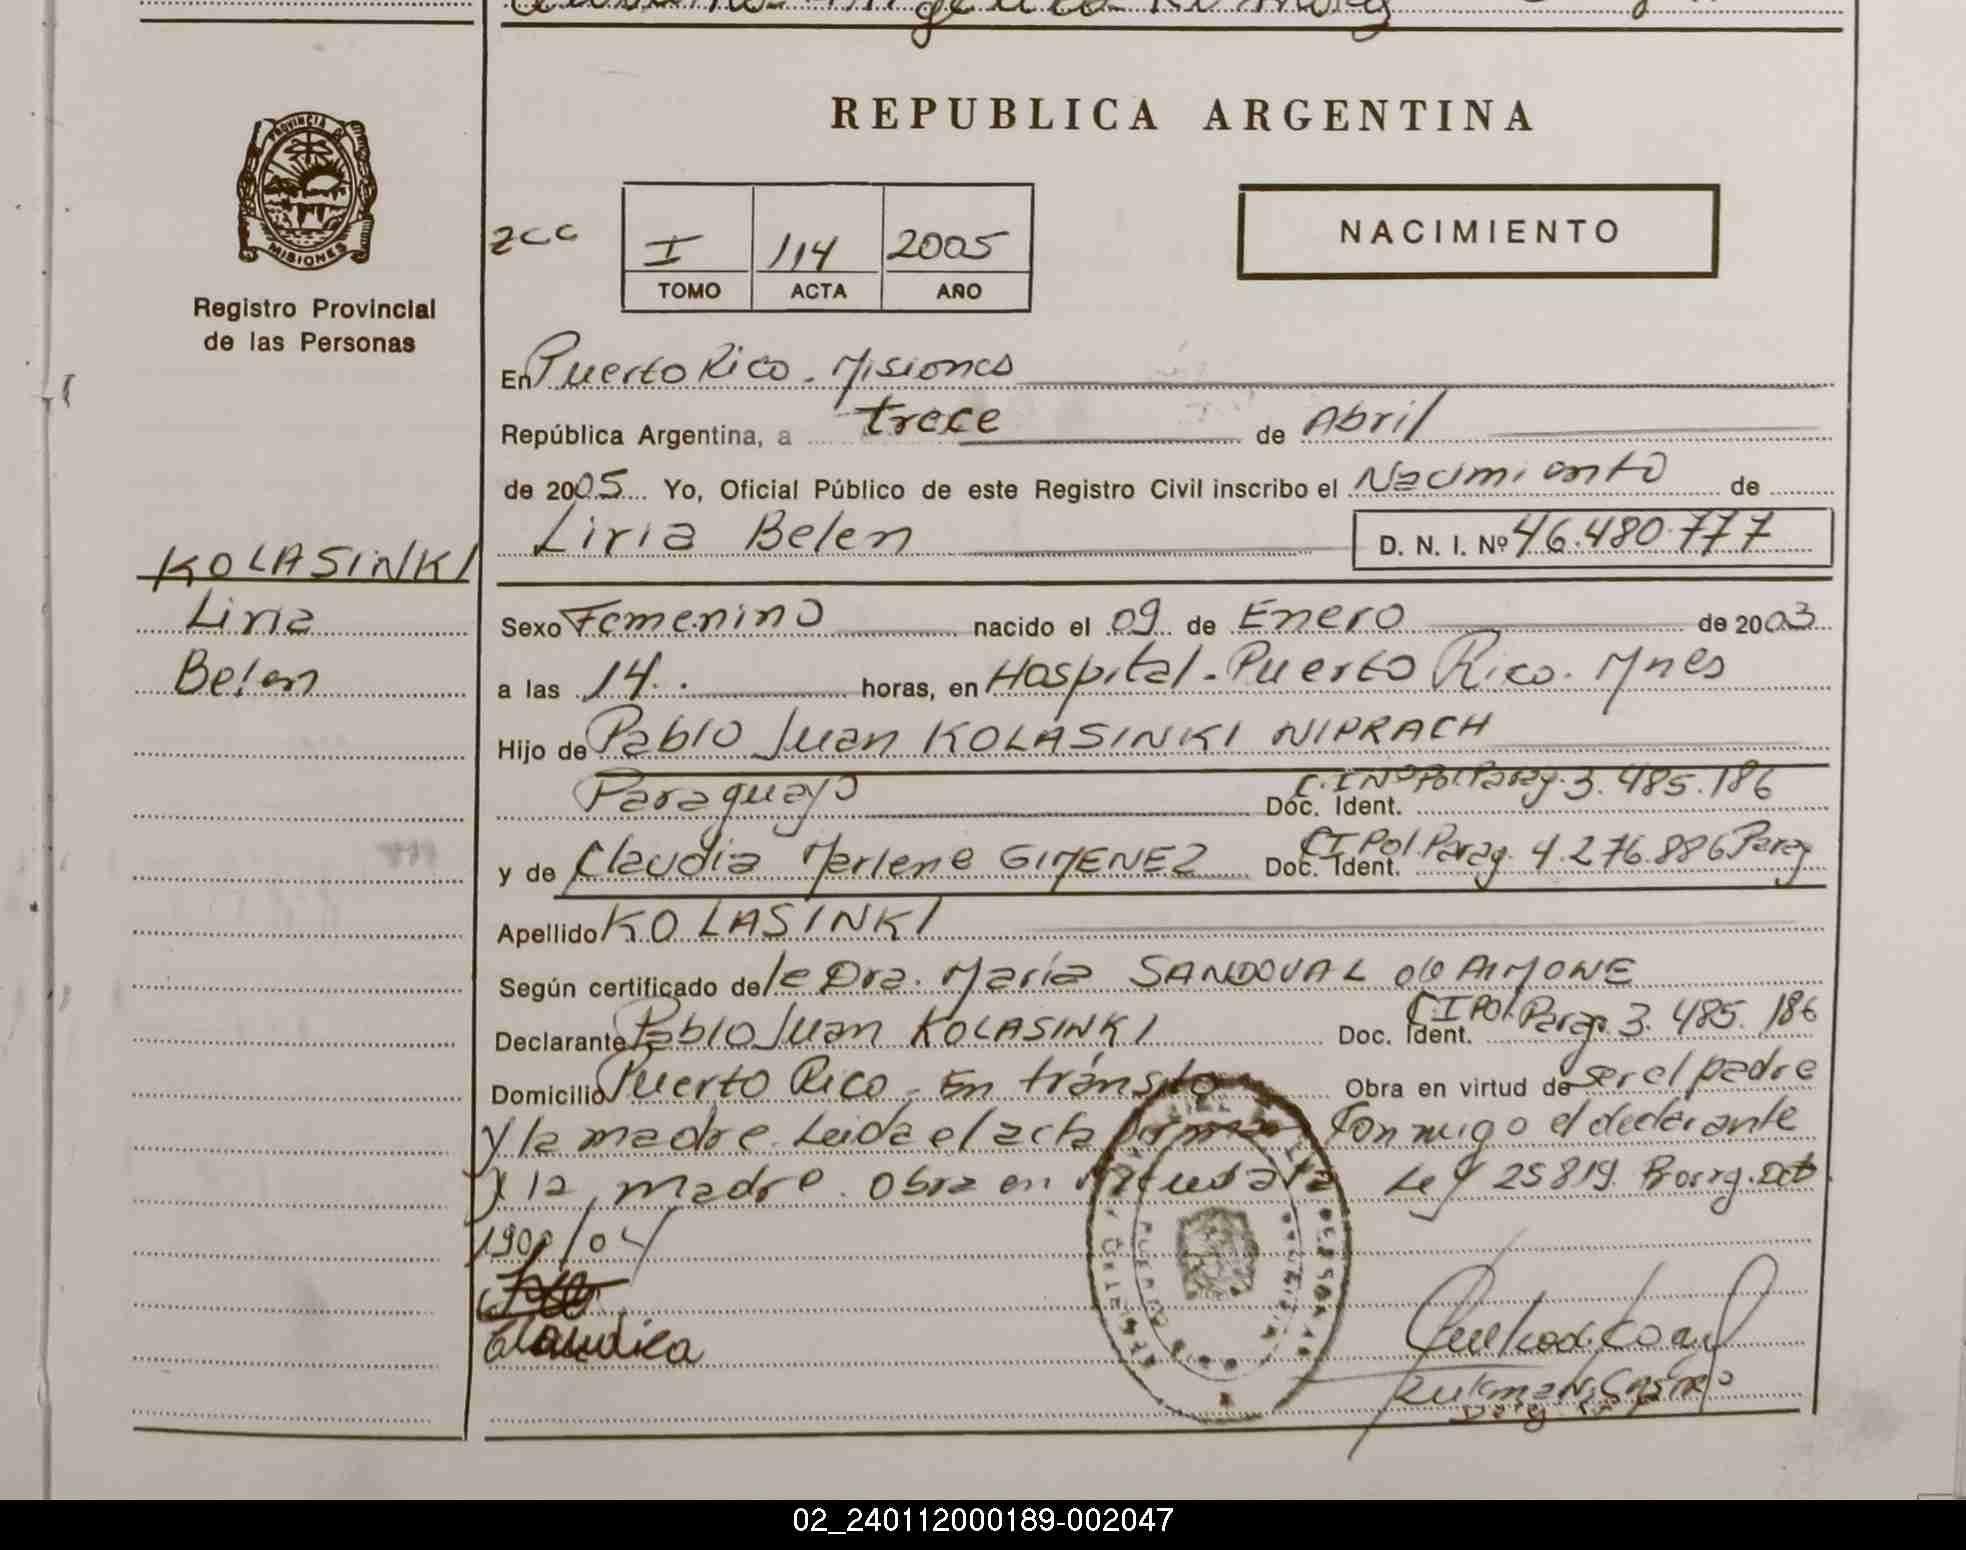 REPUBLICA ARGENTINA
PROVINCIA DE
MISIONES
Registro Provincial
de las Personas
NACIMIENTO
I 114 2005
TOMO ACTA AÑO
En Puerto Rico - Misiones
República Argentina, a trece de Abril
de 2005 Yo, Oficial Público de este Registro Civil inscribo el Nacimiento de
Liria Belen D. N. I. Nº 46.480.777
KOLASINKI
Liria
Belen
Sexo Femenino nacido el 09 de Enero de 2003
a las 14. horas, en Hospital - Puerto Rico. Mnes
Hijo de Pablo Juan KOLASINKI NIPRACH
Paraguayo Doc. Ident. C.I Nº Pol Parag. 3.485.186
y de Claudia Marlene GIMENEZ Doc. Ident. CI Pol. Parag. 4.276.886 Parag
Apellido KOLASINKI
Según certificado de la Dra. María SANDOVAL de AIMONE
Declarante Pablo Juan KOLASINKI Doc. Ident. C.I Pol. Parag. 3.485.186
Domicilio Puerto Rico - En tránsito Obra en virtud de ser el padre
y la madre. Leida el acta firman conmigo el declarante
y la madre. Obra en Ley 25819.
/04
Claudia
02_240112000189-002047